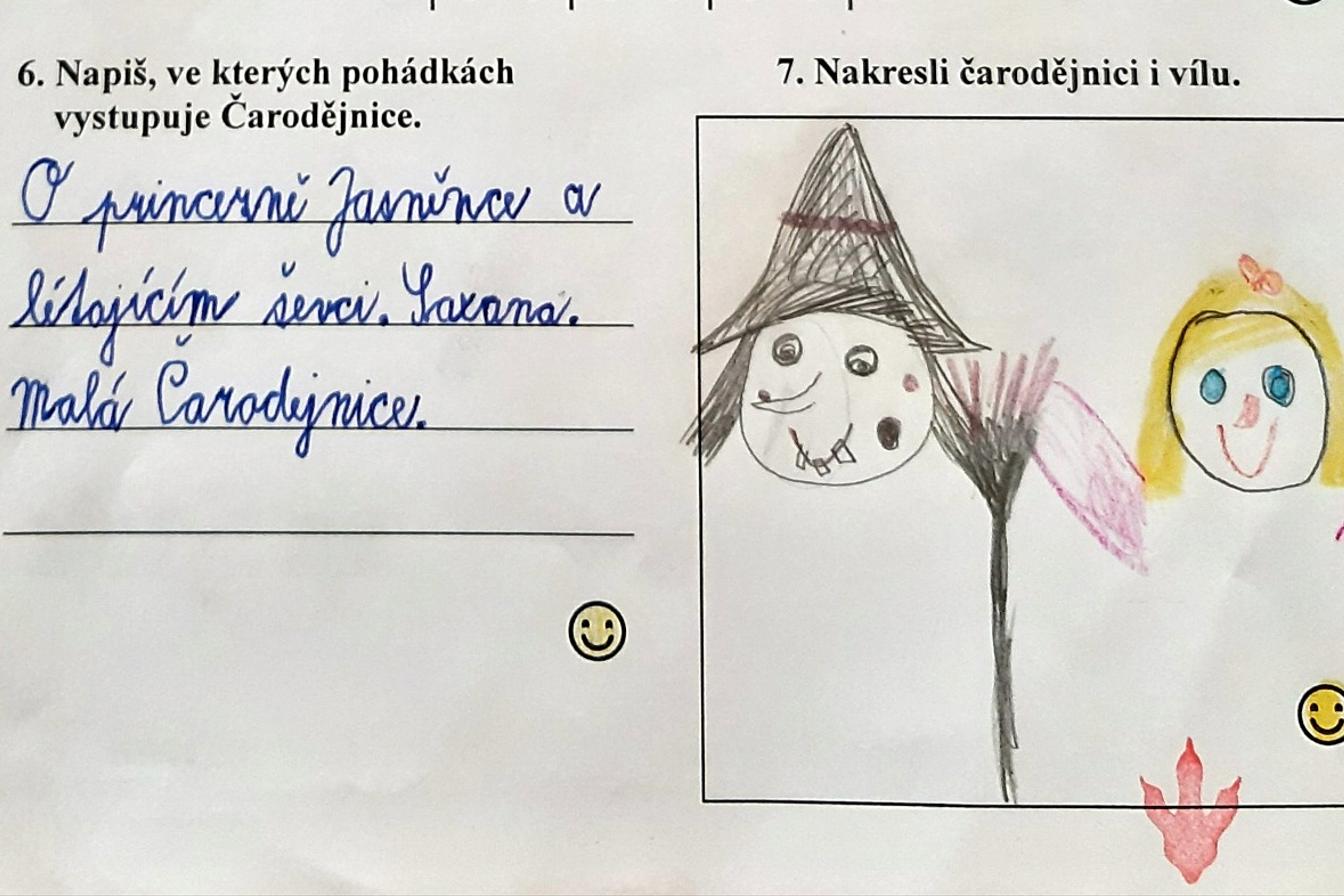 6. Napiš, ve kterých pohádkách
vystupuje Čarodějnice.
O princezně Jasněnce a
létajícím ševci. Saxana.
Malá Čarodejnice.
7. Nakresli čarodějnici i vílu.